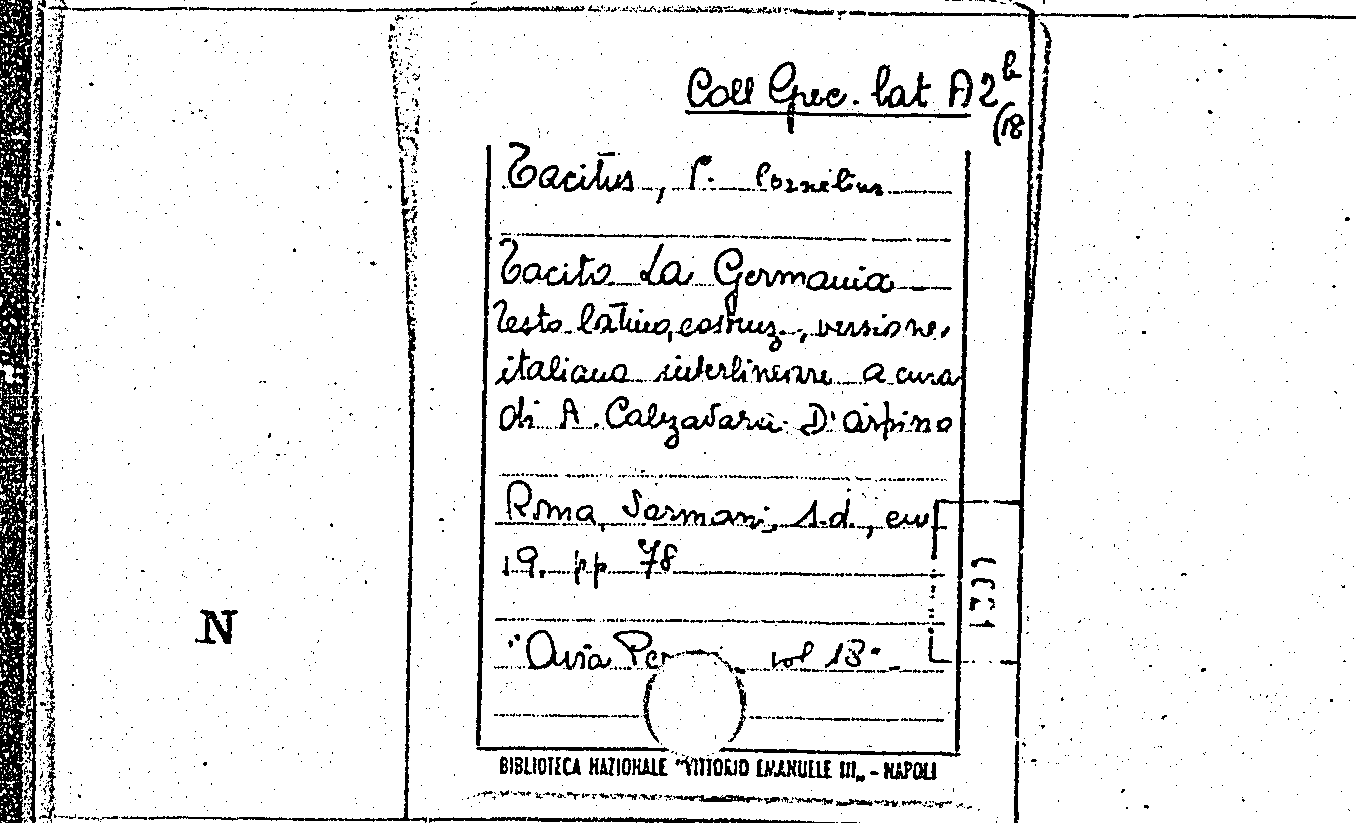 Coll Spec. lat A 2 b
(18
Tacitus, P. Cornelius
Tacito La Germania
Testo latino, costruz., versione,
italiana interlineare a cura
di A. Calzavara D'Arpino
Roma, Sormani, s.d., cm
19, pp 78
"Ovia vol 18"
N
BIBLIOTECA NAZIONALE "VITTORIO EMANUELE III„ - NAPOLI